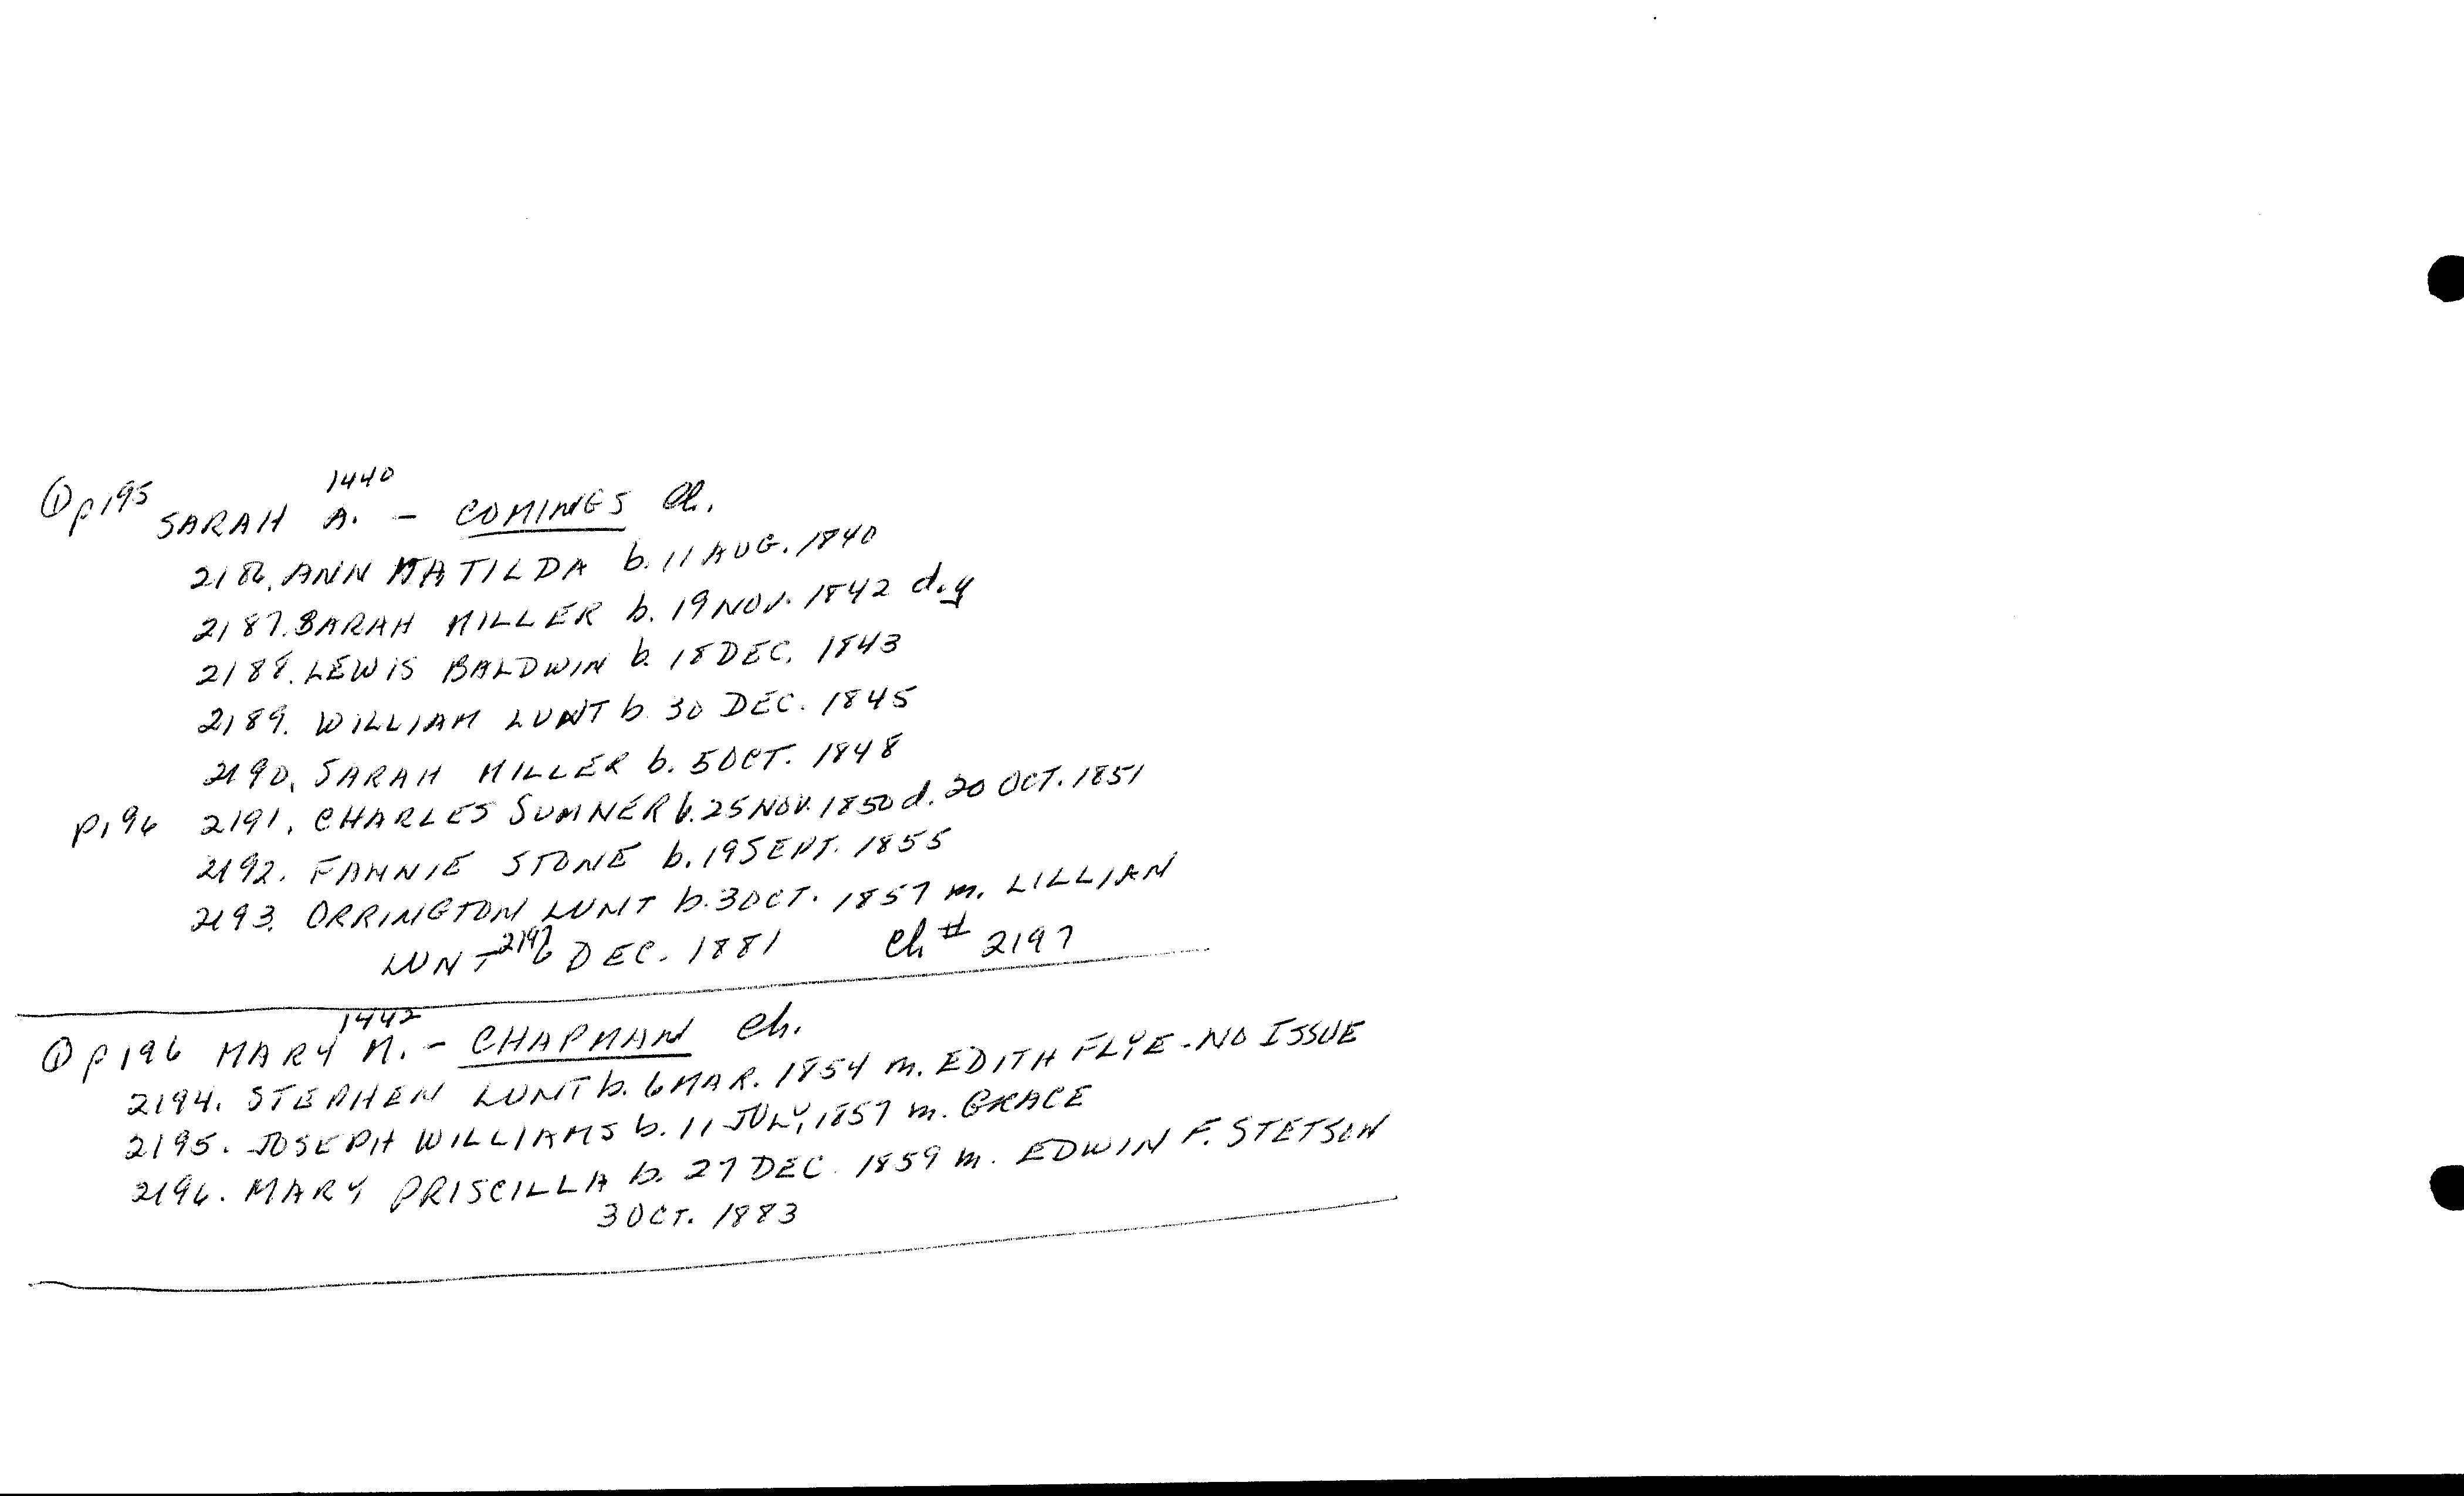 ① p195 SARAH A. 1440 – COMINGS Ch.
2186. ANN MATILDA b. 11 AUG. 1840
2187. SARAH MILLER b. 19 NOV. 1842 d.y
2188. LEWIS BALDWIN b. 18 DEC. 1843
2189. WILLIAM LUNT b. 30 DEC. 1845
2190. SARAH MILLER b. 5 OCT. 1848
p196 2191. CHARLES SUMNER b. 25 NOV. 1850 d. 20 OCT. 1851
2192. FANNIE STONE b. 19 SEPT. 1855
2193. ORRINGTON LUNT b. 3 OCT. 1857 m. LILLIAN
LUNT DEC. 1881 Ch # 2197
① p196 MARY M. 1442 – CHAPMAN Ch.
2194. STEPHEN LUNT b. 6 MAR. 1854 m. EDITH FLYE - NO ISSUE
2195. JOSEPH WILLIAMS b. 11 JULY, 1857 m. GRACE
2196. MARY PRISCILLA b. 27 DEC. 1859 m. EDWIN F. STETSON
3 OCT. 1883